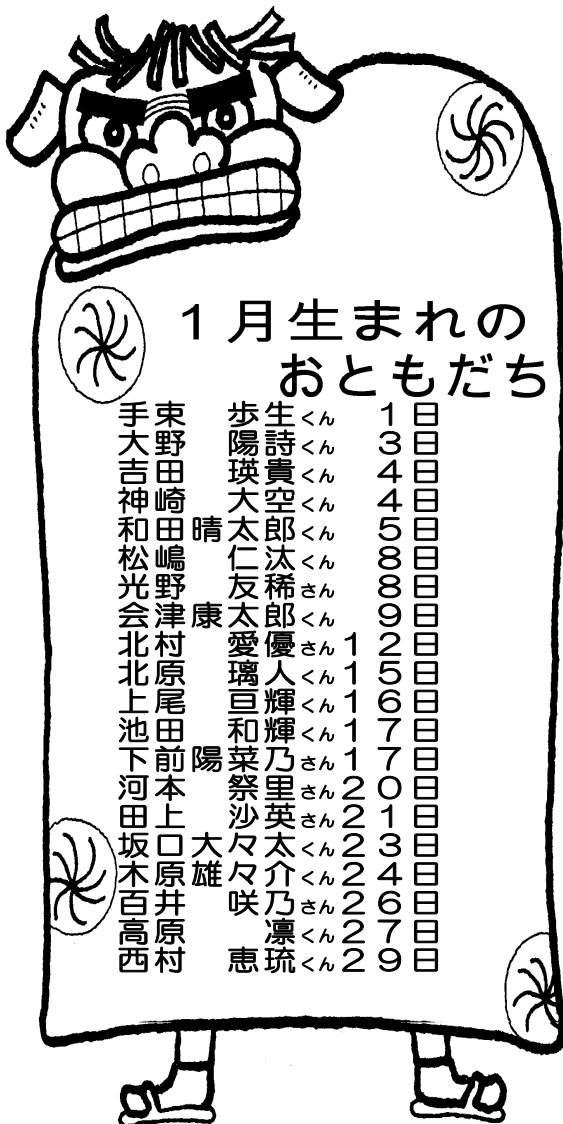 １月生まれの
おともだち
手束　歩生くん　１日
大野　陽詩くん　３日
吉田　瑛貴くん　４日
神崎　大空くん　４日
和田晴太郎くん　５日
松嶋　仁汰くん　８日
光野　友稀さん　８日
会津康太郎くん　９日
北村　愛優さん１２日
北原　璃人くん１５日
上尾　亘輝くん１６日
池田　和輝くん１７日
下前陽菜乃さん１７日
河本　祭里さん２０日
田上　沙英さん２１日
坂口大々太くん２３日
木原雄々介くん２４日
百井　咲乃さん２６日
高原　　凛くん２７日
西村　恵琉くん２９日